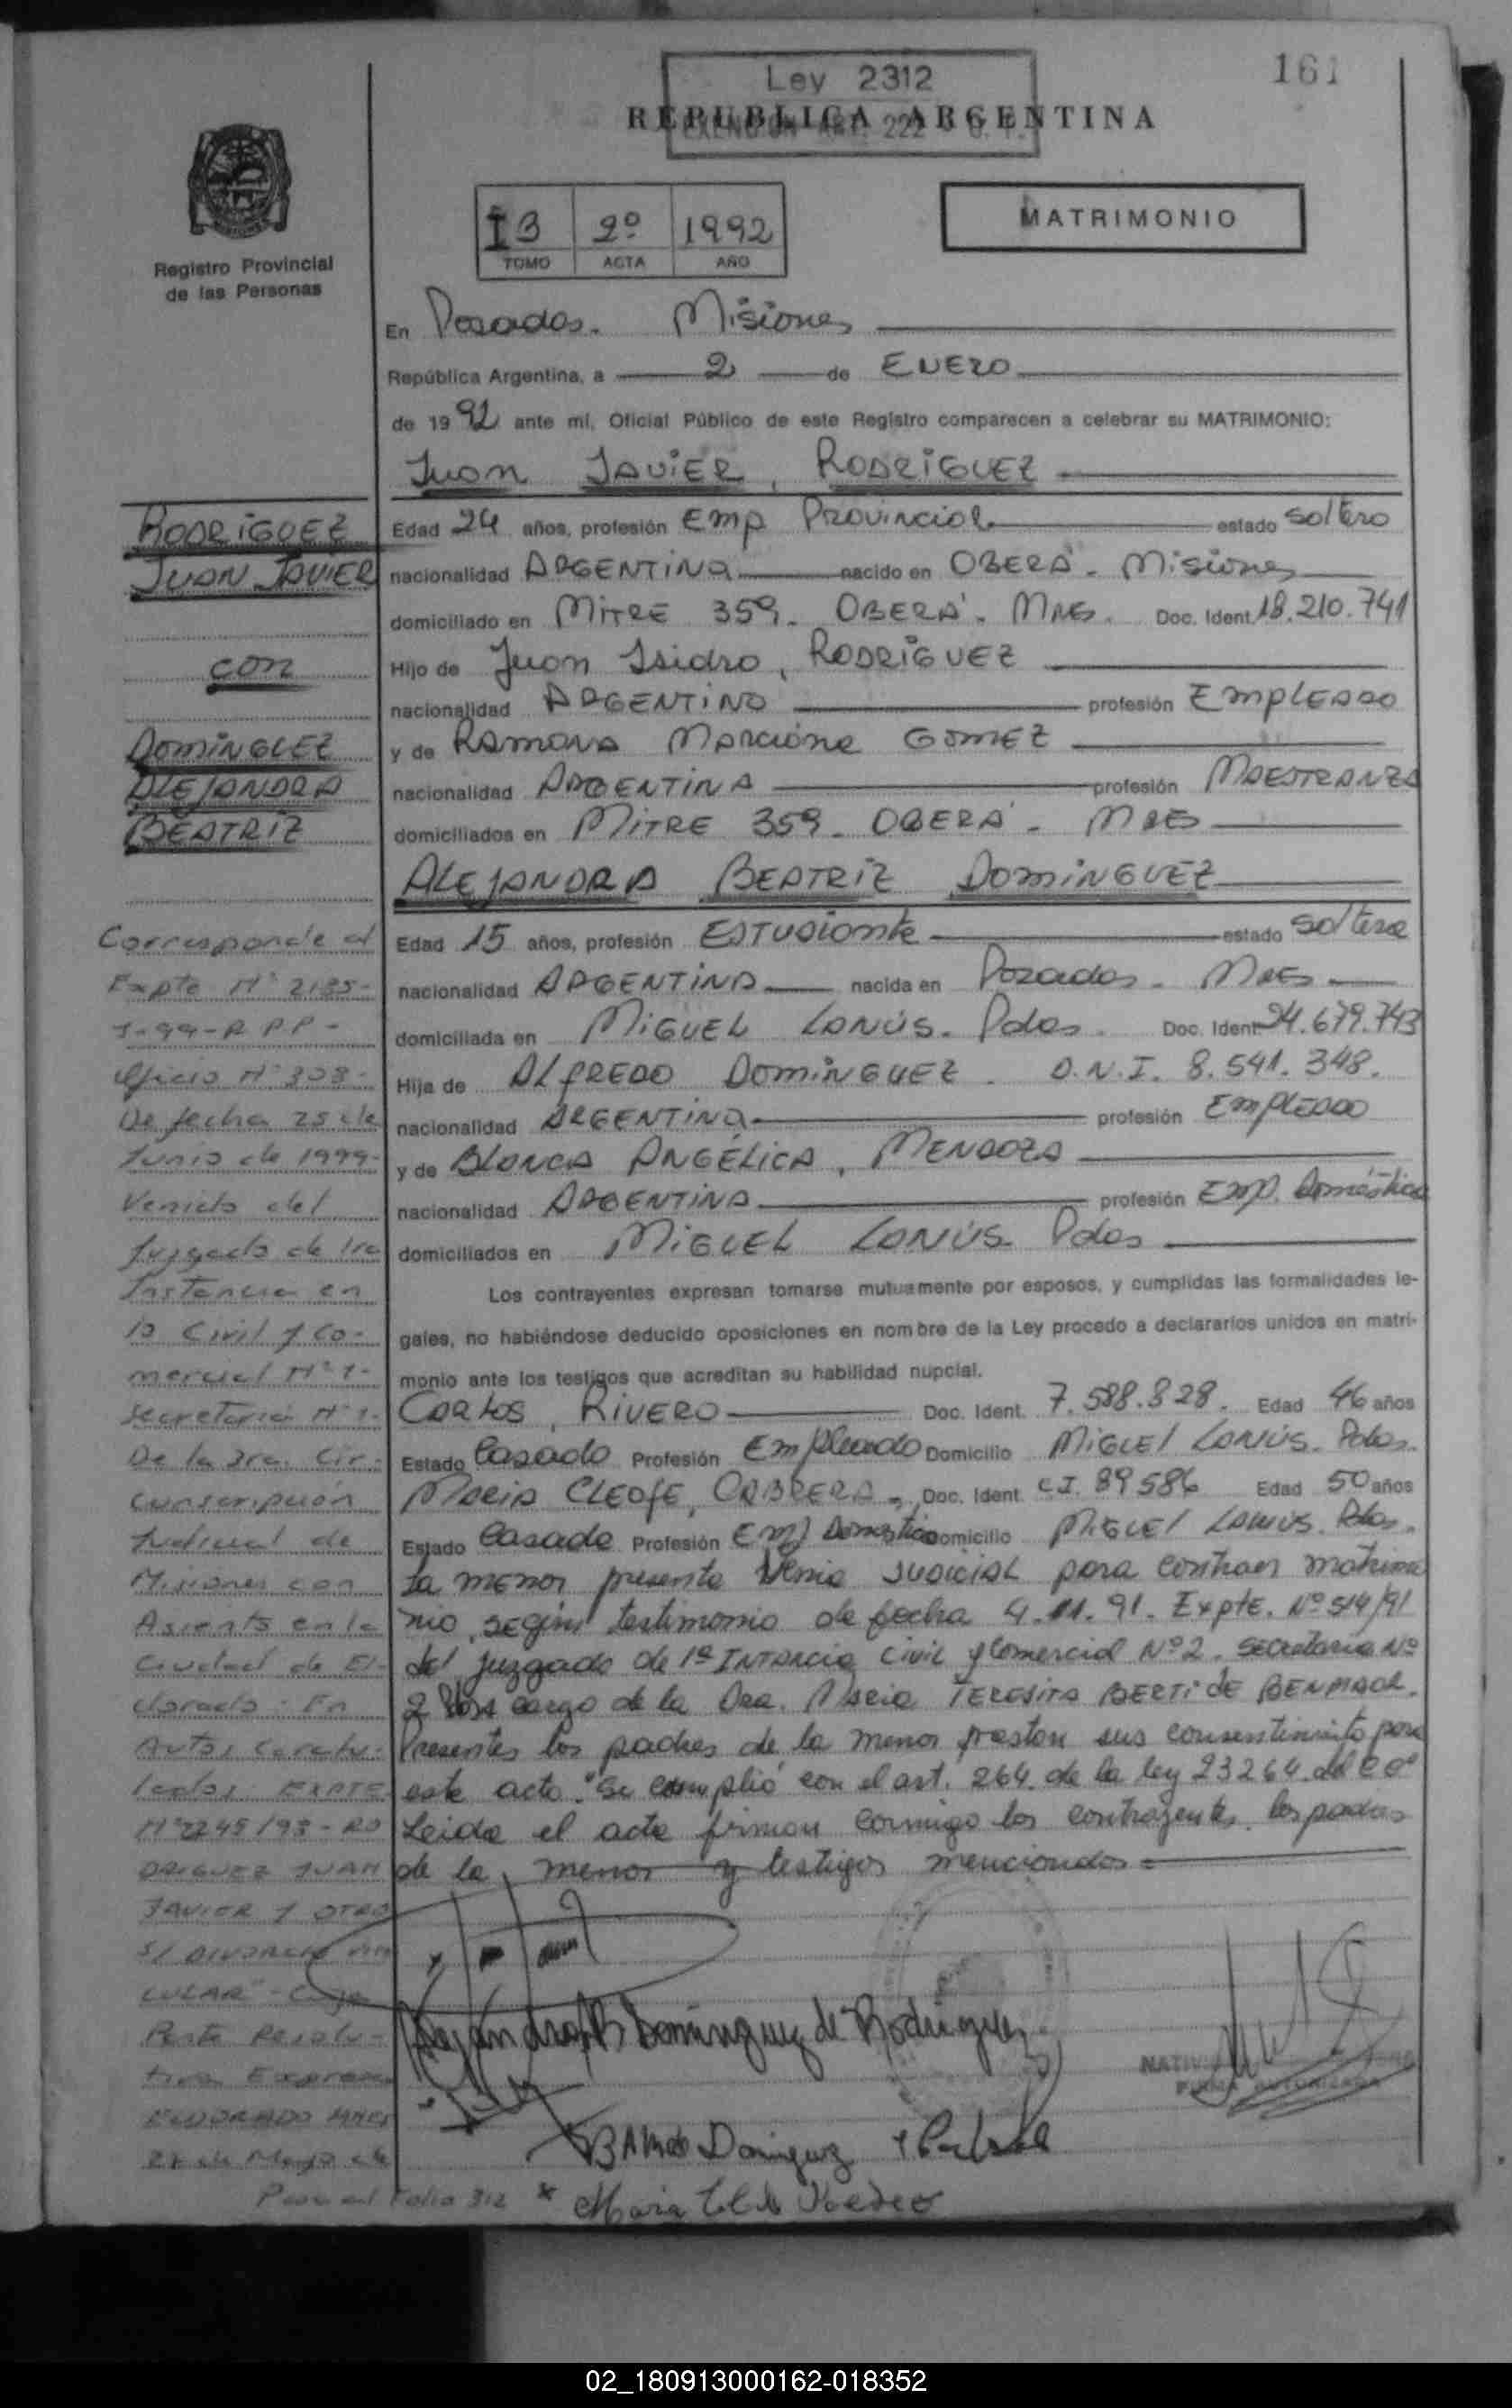 161
Ley 2312
REPUBLICA ARGENTINA
Registro Provincial
de las Personas
I3 2º 1992
TOMO ACTA AÑO
MATRIMONIO
En Posadas. Misiones
República Argentina, a 2 de ENERO
de 1992 ante mí, Oficial Público de este Registro comparecen a celebrar su MATRIMONIO:
Juan JAVIER, RODRIGUEZ
RODRIGUEZ
JUAN JAVIER
con
DOMINGUEZ
ALEJANDRA
BEATRIZ
Edad 24 años, profesión Emp Provincial estado soltero
nacionalidad ARGENTINA nacido en OBERÁ - Misiones
domiciliado en MITRE 359. OBERÁ. Mnes. Doc. Ident. 18.210.741
Hijo de Juan Isidro, RODRIGUEZ
nacionalidad ARGENTINO profesión EMPLEADO
y de RAMONA Marciona GOMEZ
nacionalidad ARGENTINA profesión MAESTRANZA
domiciliados en MITRE 359. OBERÁ - MNES
ALEJANDRA BEATRIZ DOMINGUEZ
Edad 15 años, profesión ESTUDIANTE estado soltera
nacionalidad ARGENTINA nacida en Posadas - MNES
domiciliada en MIGUEL LANÚS. Pdas. Doc. Ident 24.679.743
Hija de ALFREDO DOMINGUEZ. D.N.I. 8.541.348.
nacionalidad ARGENTINA profesión EMPLEADO
y de BLANCA ANGÉLICA, MENDOZA
nacionalidad ARGENTINA profesión Emp. Doméstica
domiciliados en MIGUEL LANÚS. Pdas
Los contrayentes expresan tomarse mutuamente por esposos, y cumplidas las formalidades le-
gales, no habiéndose deducido oposiciones en nombre de la Ley procedo a declararlos unidos en matri-
monio ante los testigos que acreditan su habilidad nupcial.
Carlos, RIVERO Doc. Ident. 7.588.828. Edad 46 años
Estado Casado Profesión Empleado Domicilio MIGUEL LANÚS. Pdas.
MARIA CLEOFE, CABRERA, Doc. Ident C.I. 89586 Edad 50 años
Estado Casada Profesión Emp Domestica Domicilio MIGUEL LANUS. Pdas.
La menor presenta Venia JUDICIAL para contraer matrimo
nio, según testimonio de fecha 4.11.91. Expte. Nº 514/91
del juzgado de 1ª INTANCIA Civil y Comercial Nº 2. Secretaria Nº
2 cargo de la Dra. Maria TERESITA BERTI DE BENMAOR.
Presentes los padres de la menor prestan sus consentimiento para
este acto. "Se cumplió con el art. 264. de la ley 23264. del CC"
Leida el acta firman conmigo los contrayentes, los padres
de la menor y testigos mencionados =
Corresponde al
Expte Nº 2135-
J-99-R P P -
Oficio Nº 303-
De fecha 25 de
Junio de 1999-
Venido del
Juzgado de 1ra
Instancia en
lo Civil y Co-
mercial Nº 1-
Secretaria Nº 1-
De la 3ra. Cir-
cunscripción
Judicial de
Misiones con
Asiento en la
Ciudad de El-
dorado: En
Autos Caratu-
lados: EXPTE
Nº 2245/93 - RO
DRIGUEZ JUAN
JAVIER Y OTRO
S/ DIVORCIO VIN
CULAR" - Cuya
Parte Resolu-
tiva Expresa
ELDORADO MNES
28 de Mayo de
Pasa al Folio 312
Alejandra B Dominguez de Rodriguez
Dominguez
FIRMA AUTORIZADA
02_180913000162-018352